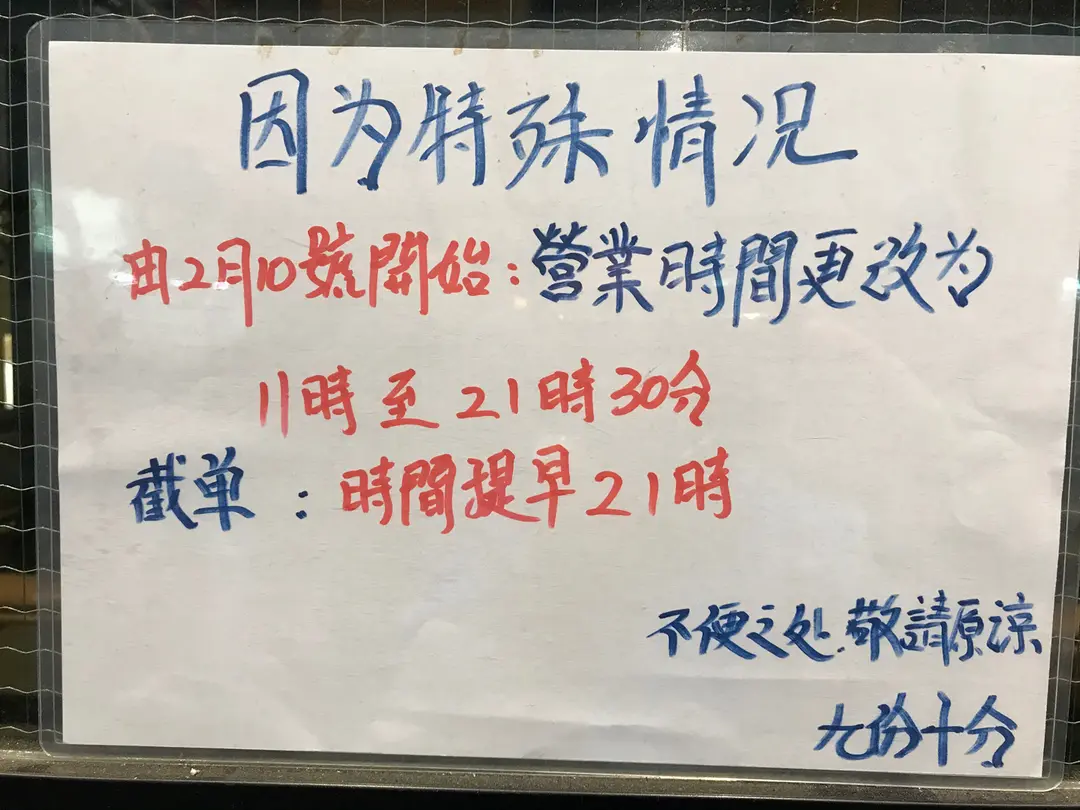 因为特殊情况
由2月10號開始：營業時間更改为
11時至21時30分
截单：時間提早21時
不便之处.敬請原涼
九份十分